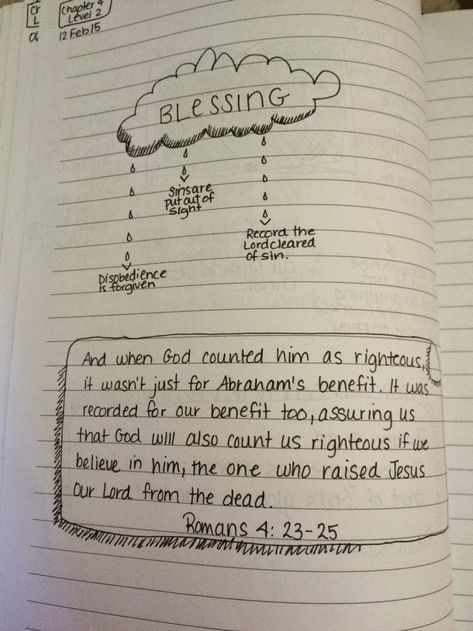 Cr
L
a
Chapter 4
Level 2
12 Feb 15
BLESSING
Sins are
put out of
sight
Record the
Lord cleared
of sin.
Disobedience
is forgiven
And when God counted him as righteous,
it wasn't just for Abraham's benefit. It was
recorded for our benefit too, assuring us
that God will also count us righteous if we
believe in him, the one who raised Jesus
our Lord from the dead.
Romans 4: 23-25